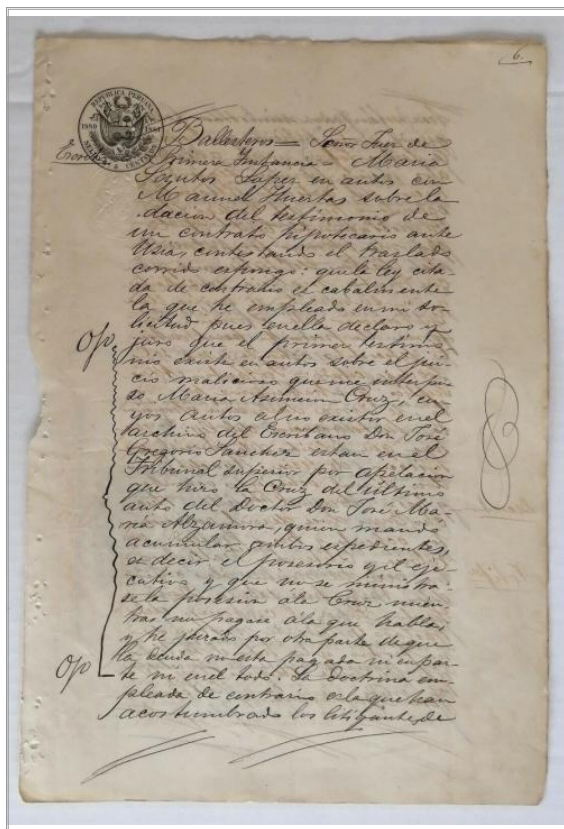 6.
REPUBLICA PERUANA
1880 1881
Ballesteros = Señor Juez de
Primera Instancia = Maria
Santos Lopez en autos con
Manuel Huertas sobre la
dacion del testimonio de
un contrato hipotecario ante
Usia, contestando el traslado
corrido espongo: que la ley cita-
da de contrario es cabalmente
la que he empleado en mi so-
licitud pues en ella declaro y
juro que el primer testimo
nio existe en autos sobre el jui-
cio malicioso que me interpu-
so Maria Asuncion Cruz, cu-
yos autos al no existir en el
archivo del Escribano Don José
Gregorio Sanchez estan en el
Tribunal superior por apelacion
que hizo la Cruz del último
auto del Doctor Don José Ma-
ria Alzamora, quien mandó
acumular ambos espedientes,
es decir el posesorio y el eje-
cutivo y que no se ministra-
se la posesion á la Cruz mien
tras no pagase á la que habla,
y he jurado por otra parte de que
la deuda ni esta pagada ni en par-
te ni en el todo. La doctrina em-
pleada de contrario es la que han
acostumbrado los litigantes de
Ojo
Ojo